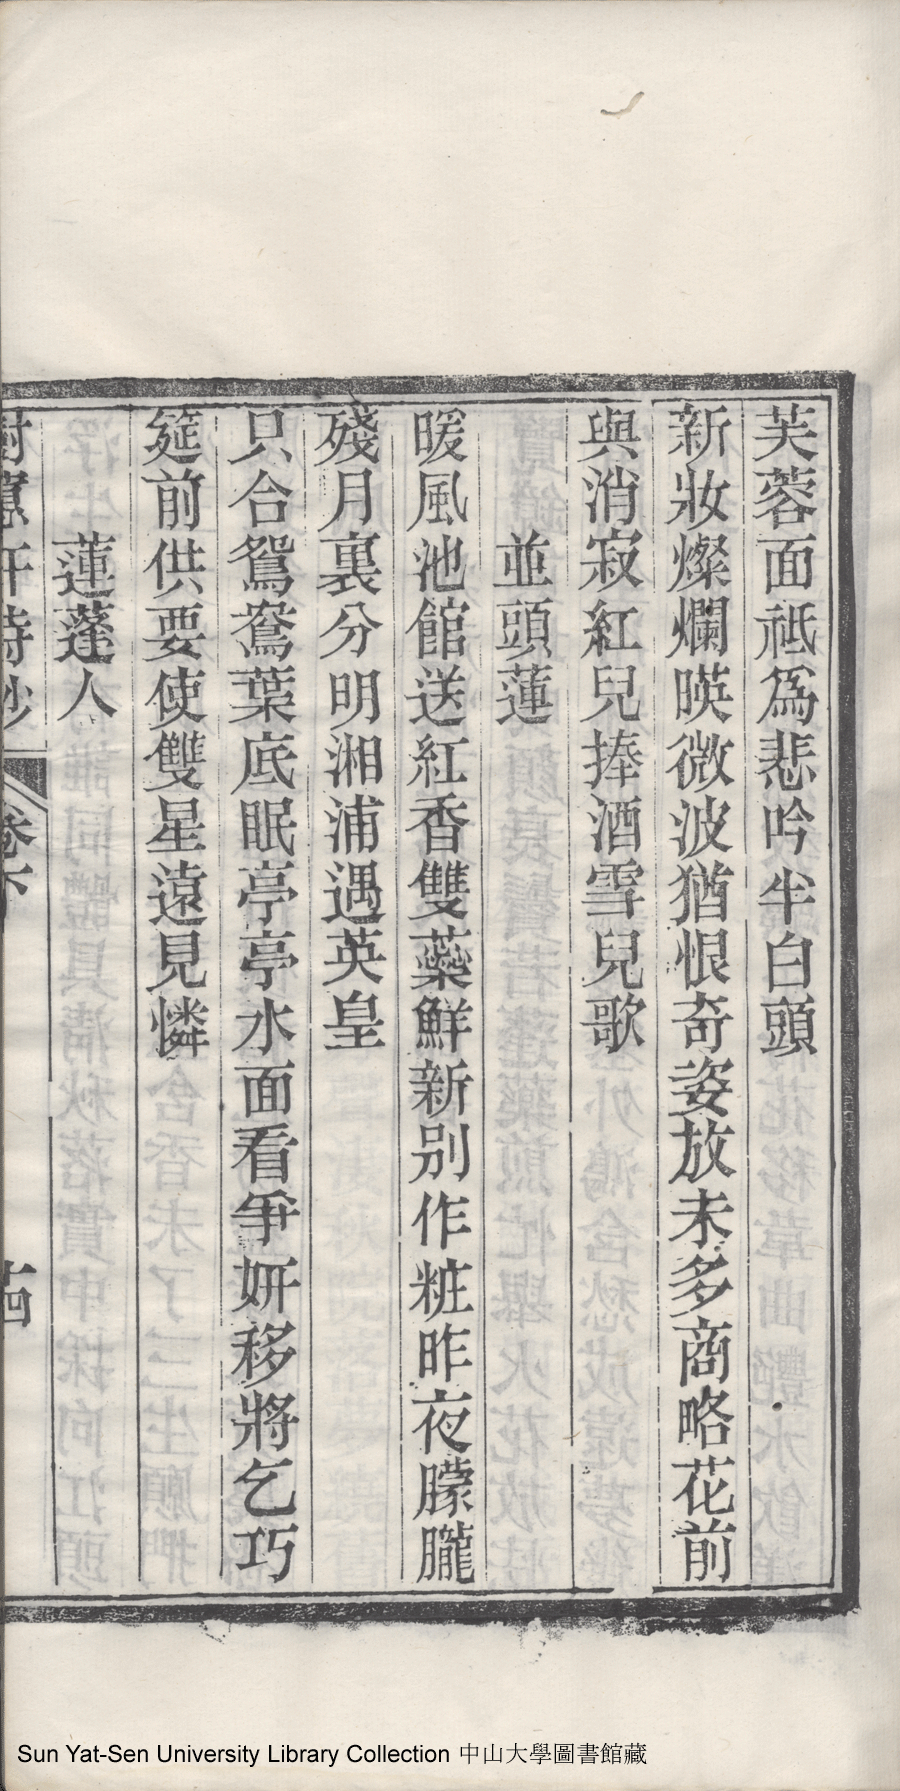 芙蓉面祗爲悲吟半白頭
新妝燦爛暎微波猶恨奇姿放未多商略花前
與消寂紅兒捧酒雪兒歌
並頭蓮
暖風池館送紅香雙蘂鮮新別作粧昨夜朦朧
殘月裏分明湘浦遇英皇
只合鴛鴦葉底眠亭亭水面看爭妍移將乞巧
筵前供要使雙星遠見憐
蓮蓬人
樹蕙軒詩鈔 卷下 十四
Sun Yat-Sen University Library Collection 中山大學圖書館藏